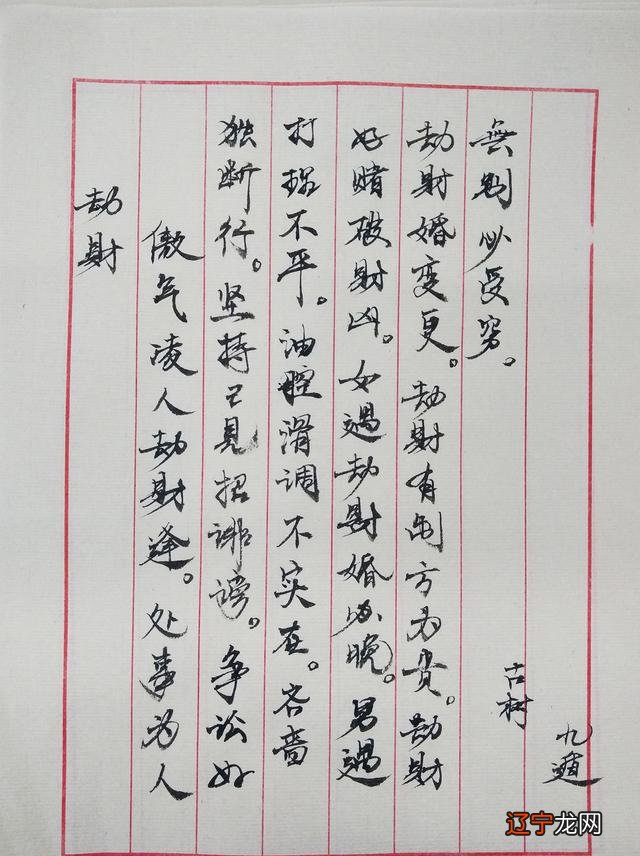 劫財
傲气凌人劫財逢。处事为人
独断行。坚持己见招诽谤。争讼好
打抱不平。油腔滑调不实在。吝啬
好赌破財凶。女遇劫財婚必晚。男遇
劫財婚变更。劫財有制方为贵。劫財
無制必受穷。
古村
九遁
辽宁龙网